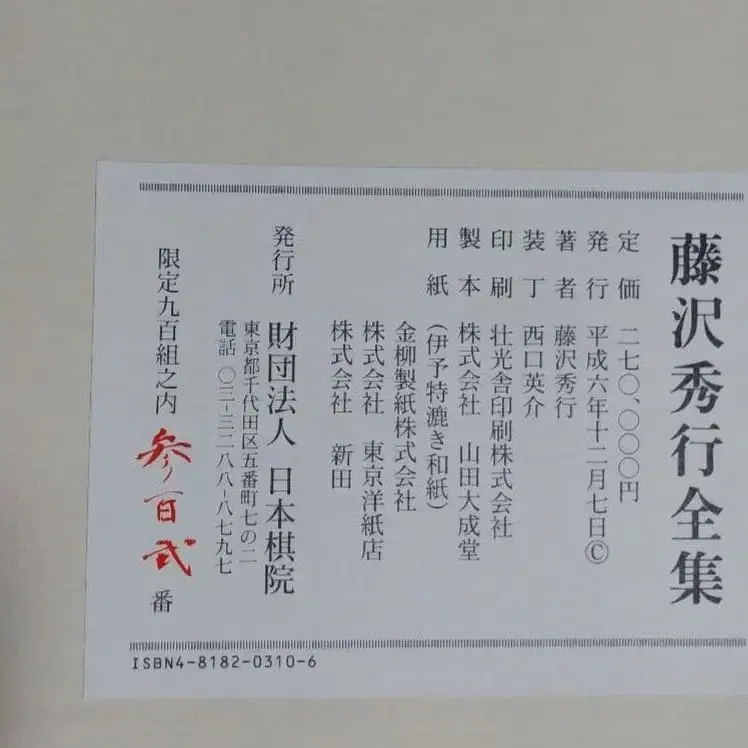 藤沢秀行全集
定価 二七〇、〇〇〇円
発行 平成六年十二月七日©
著者 藤沢秀行
装丁 西口英介
印刷 壮光舎印刷株式会社
製本 株式会社 山田大成堂
用紙 (伊予特漉き和紙)
金柳製紙株式会社
株式会社 東京洋紙店
株式会社 新田
発行所 財団法人 日本棋院
東京都千代田区五番町七の二
電話 〇三-三二八八-八七九七
限定九百組之内 参百弐 番
ISBN4-8182-0310-6